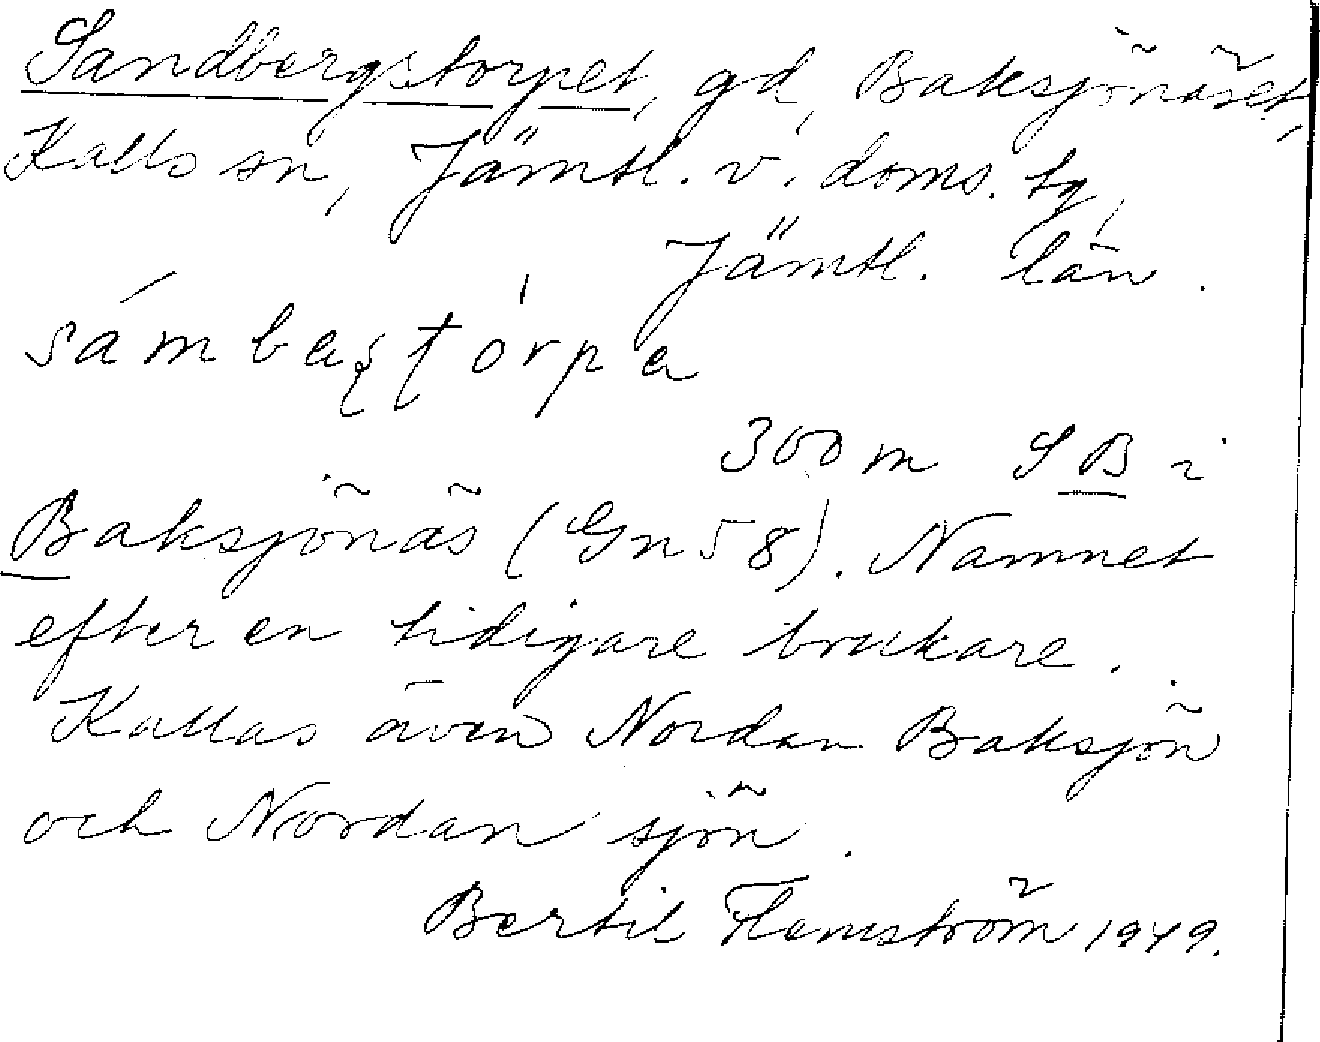 Sandbergstorpet, gd, Baksjönäset,
Kalls sn, Jämtl. v. doms. tg,
Jämtl. län.
300 m S B i
Baksjönäs (Gn 58). Namnet
efter en tidigare brukare.
Kallas även Nordan Baksjön
och Nordan sjön.
Bertil Flemström 1949.